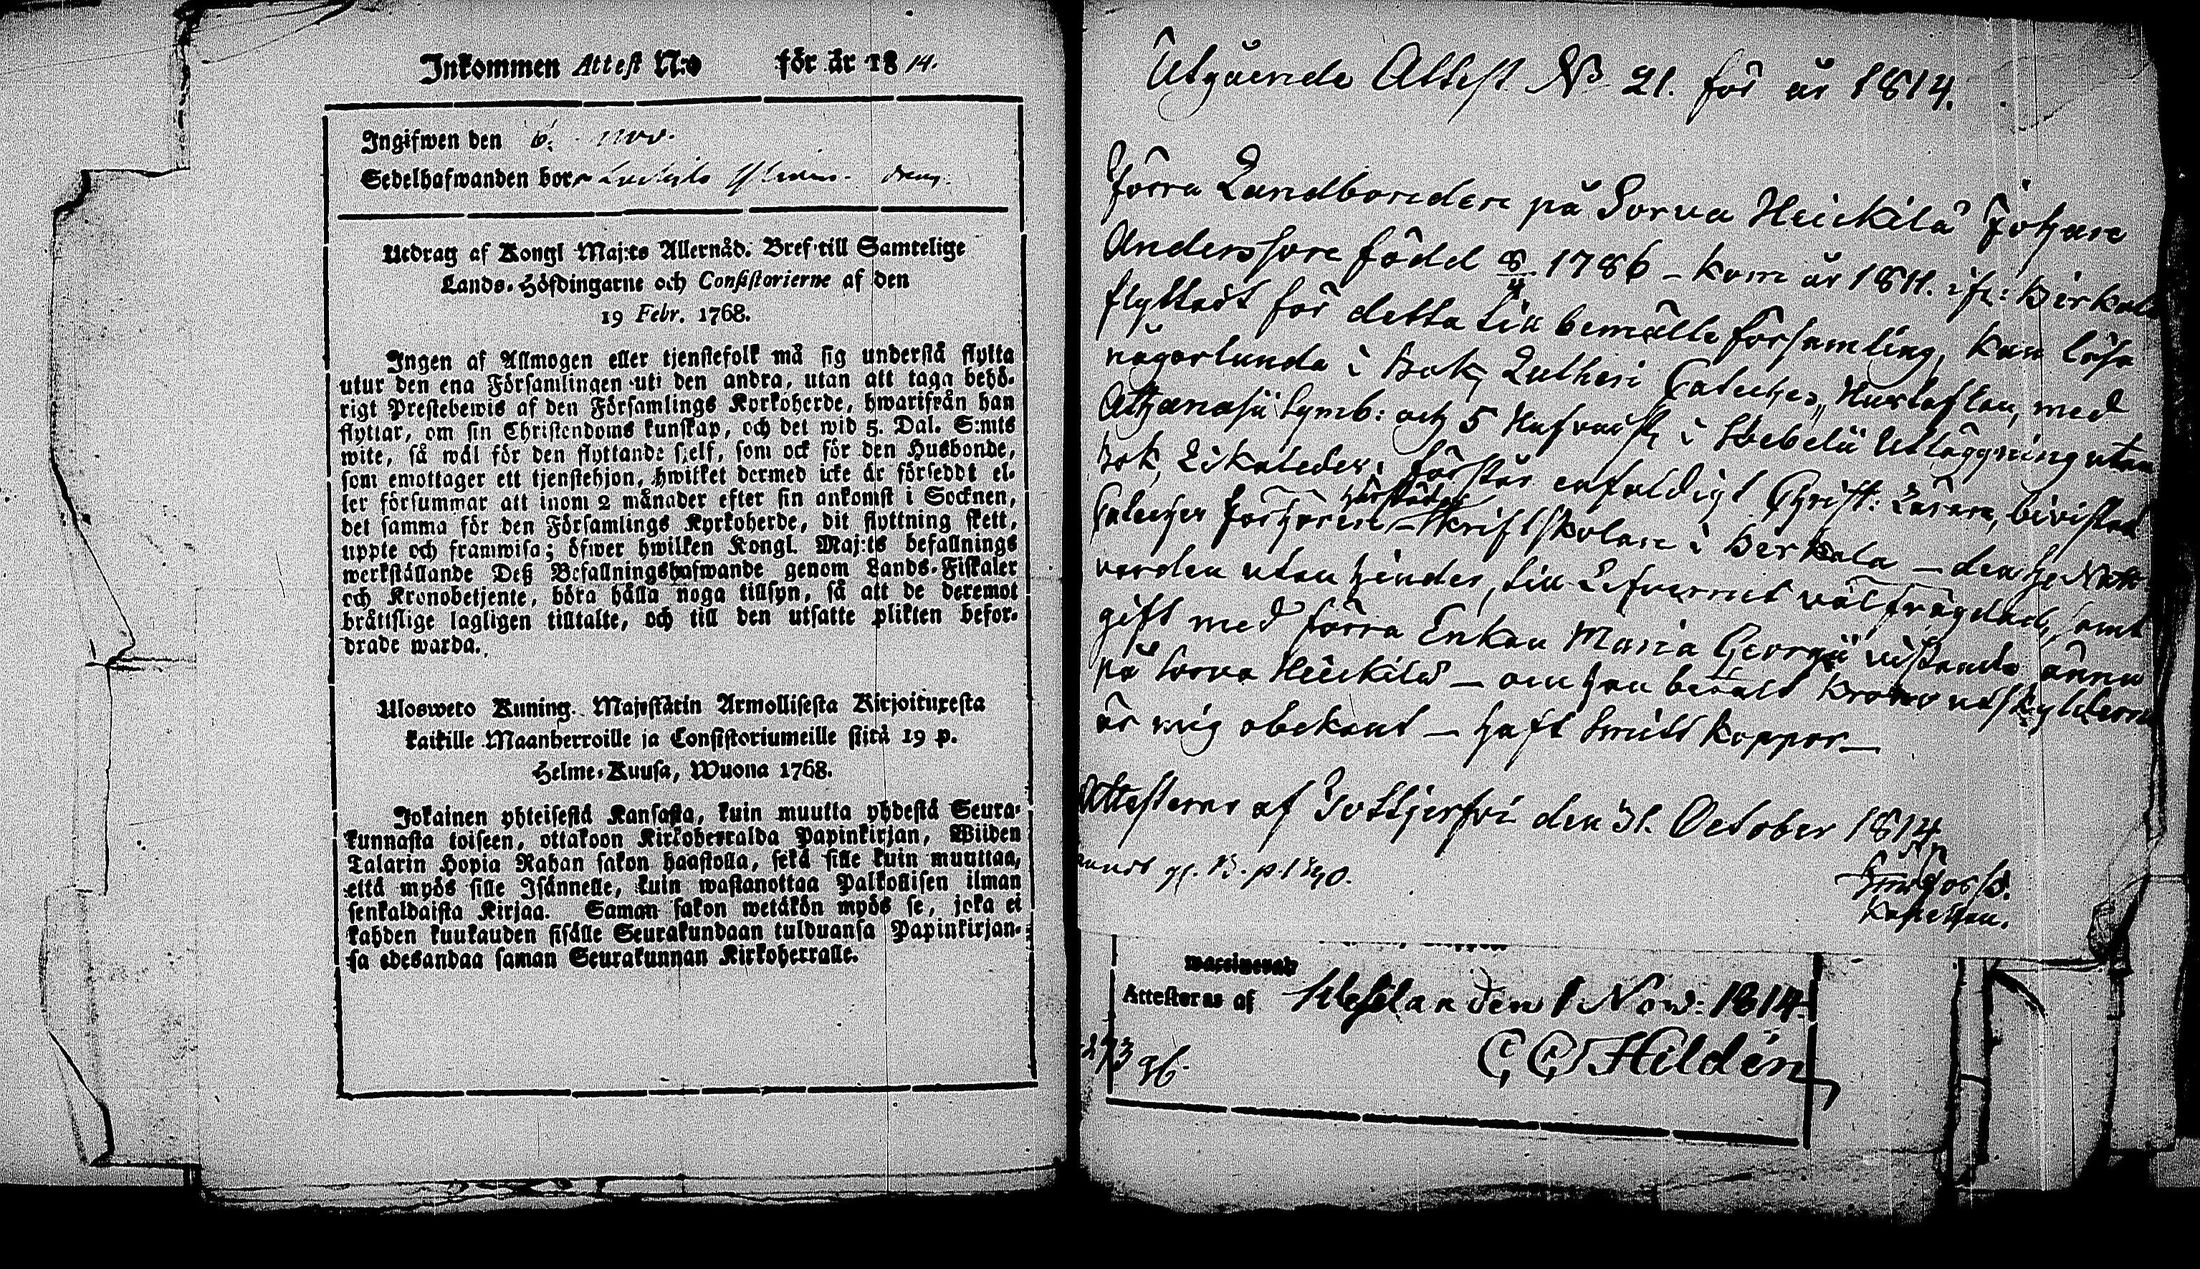 Inkommen Attest N:o för år 1814.
Ingifwen den 6. nov.
Sedelhafwanden bor
Utdrag af Kongl Maj:ts Allernåd. Bref till Samtelige
Lands-Höfdingarne och Consistorierne af den
19 Febr. 1768.
Ingen af Allmogen eller tjenstefolk må sig understå flytta
utur den ena Församlingen uti den andra, utan att taga behö-
rigt Prestebewis af den Församlings Kyrkoherde, hwarifrån han
flyttar, om sin Christendoms kunskap, och det wid 5. Dal. S:mts
wite, så wäl för den flyttande sjelf, som ock för den Husbonde,
som emottager ett tjenstehjon, hwilket dermed icke är försedt el-
ler försummar att inom 2 månader efter sin ankomst i Socknen,
det samma för den Församlings Kyrkoherde, dit flyttning skett,
uppte och framwisa; öfwer hwilken Kongl. Maj:ts befallnings
werkställande Deß Befallningshafwande genom Lands-Fiskaler
och Kronobetjente, böra hålla noga tillsyn, så att de deremot
bråttslige lagligen tilltalte, och till den utsatte plikten befor-
drade warda.
Ulosweto Kuning. Majestätin Armollisesta Kirjoituxesta
kaikille Maanherroille ja Consistoriumeille siitä 19 p.
Helme-Kuusa, Wuona 1768.
Jokainen yhteisestä Kansasta, kuin muutta yhdestä Seura-
kunnasta toiseen, ottakoon Kirkoherralda Papinkirjan, Wiiden
Talarin Hopia Rahan sakon haastolla, sekä sille kuin muuttaa,
että myös sille Isännelle, kuin wastanottaa Palkollisen ilman
senkaldaista Kirjaa. Saman sakon wetäkön myös se, joka ei
kahden kuukauden sisälle Seurakundaan tulduansa Papinkirjan-
sa edesandaa saman Seurakunnan Kirkoherralle.
Utgående Attest No 21. för år 1814.
Förra Landbonden på Sorva Heickilä Johan
Andersson född 8/4 1786 – kom år 1811. ifr: Birkala
flyttadt för detta till bemälte församling, kan läsa
någorlunda i Bok, Lutheri Cateches, Hustaflan, med
Athanasii Symb: och 5 Hufvudst. i Svebelii Utläggning utan
bok, förstår enfaldigt Christ: Läran, bivistat
Catechesförhören härstädes – Skriftskolan i Berkala – den H. Nattv
varden utan hinder, till Lefvernet välfrägdad, samt
gift med förra Enkan Maria Georgii vistande ännu
på Sorva Heickilä – om han betalt Krono utskylderna
är mig obekant – haft Smitt koppor –
Attesteras af den 31. October 1814
Kapellan.
waccinerad
Attesteras af den 1 Nov: 1814.
C G Hildén